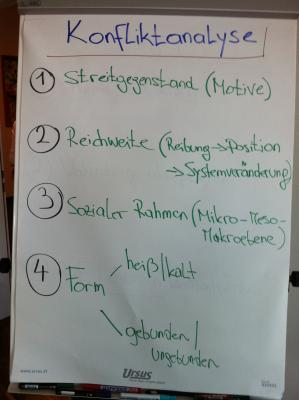 Konfliktanalyse
1 Streitgegenstand (Motive)
2 Reichweite (Reibung → Position
→ Systemveränderung)
3 Sozialer Rahmen (Mikro-Meso-
Makroebene)
4 Form
heiß/kalt
gebunden/
ungebunden
www.ursus.at
URSUS